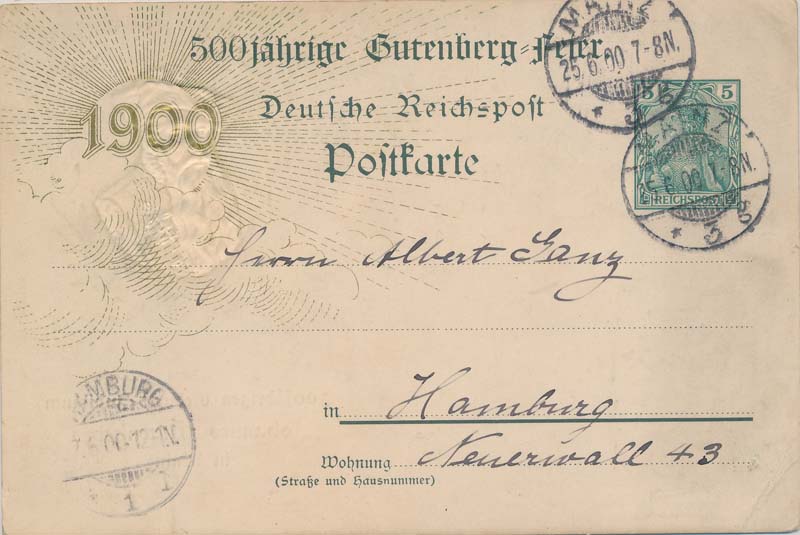 MAINZ
25.6.00 7-8N.
* 3 b
500jährige Gutenberg-Feier
1900
Deutsche Reichspost
Postkarte
5 5
REICHSPOST
MAINZ
6.00 7-8N.
* 3
Herrn Albert Ganz
in Hamburg
Wohnung Neuerwall 43
(Straße und Hausnummer)
HAMBURG
.6.00.12-1N.
1 1